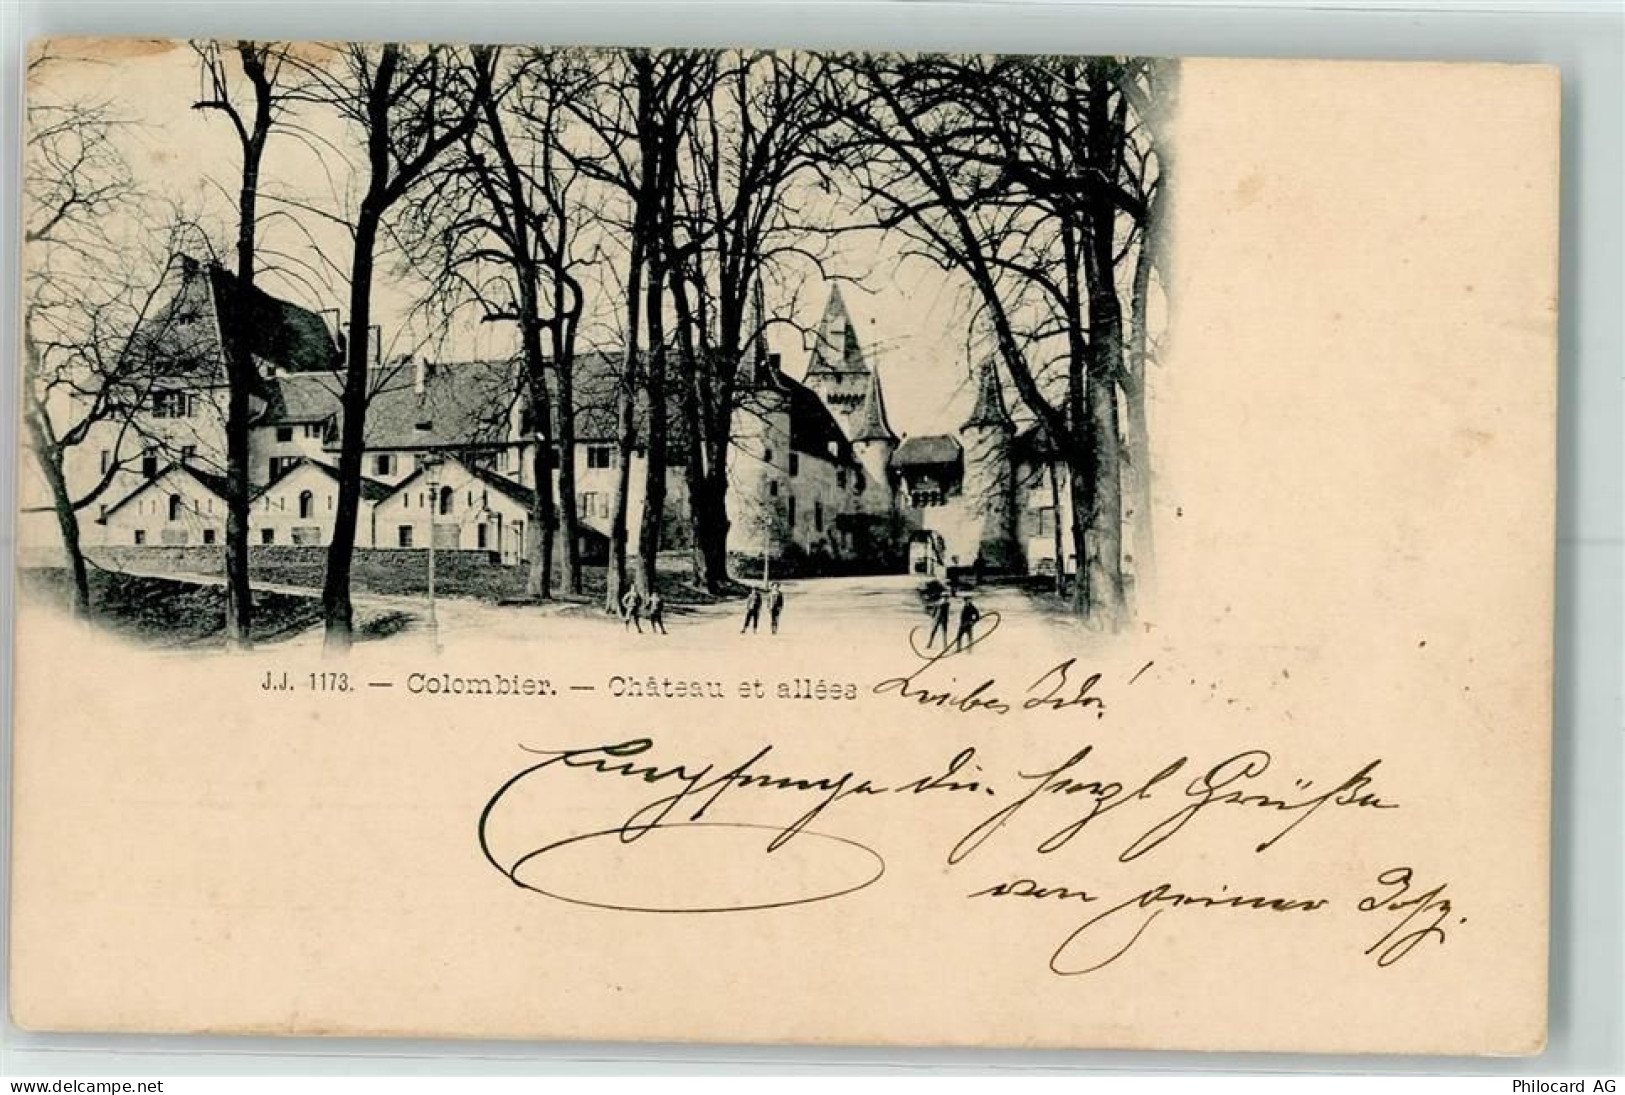 J.J. 1173. — Colombier. — Château et allées
Liebes Ida!
Empfange die herzl Grüße
von Deiner
www.delcampe.net
Philocard AG